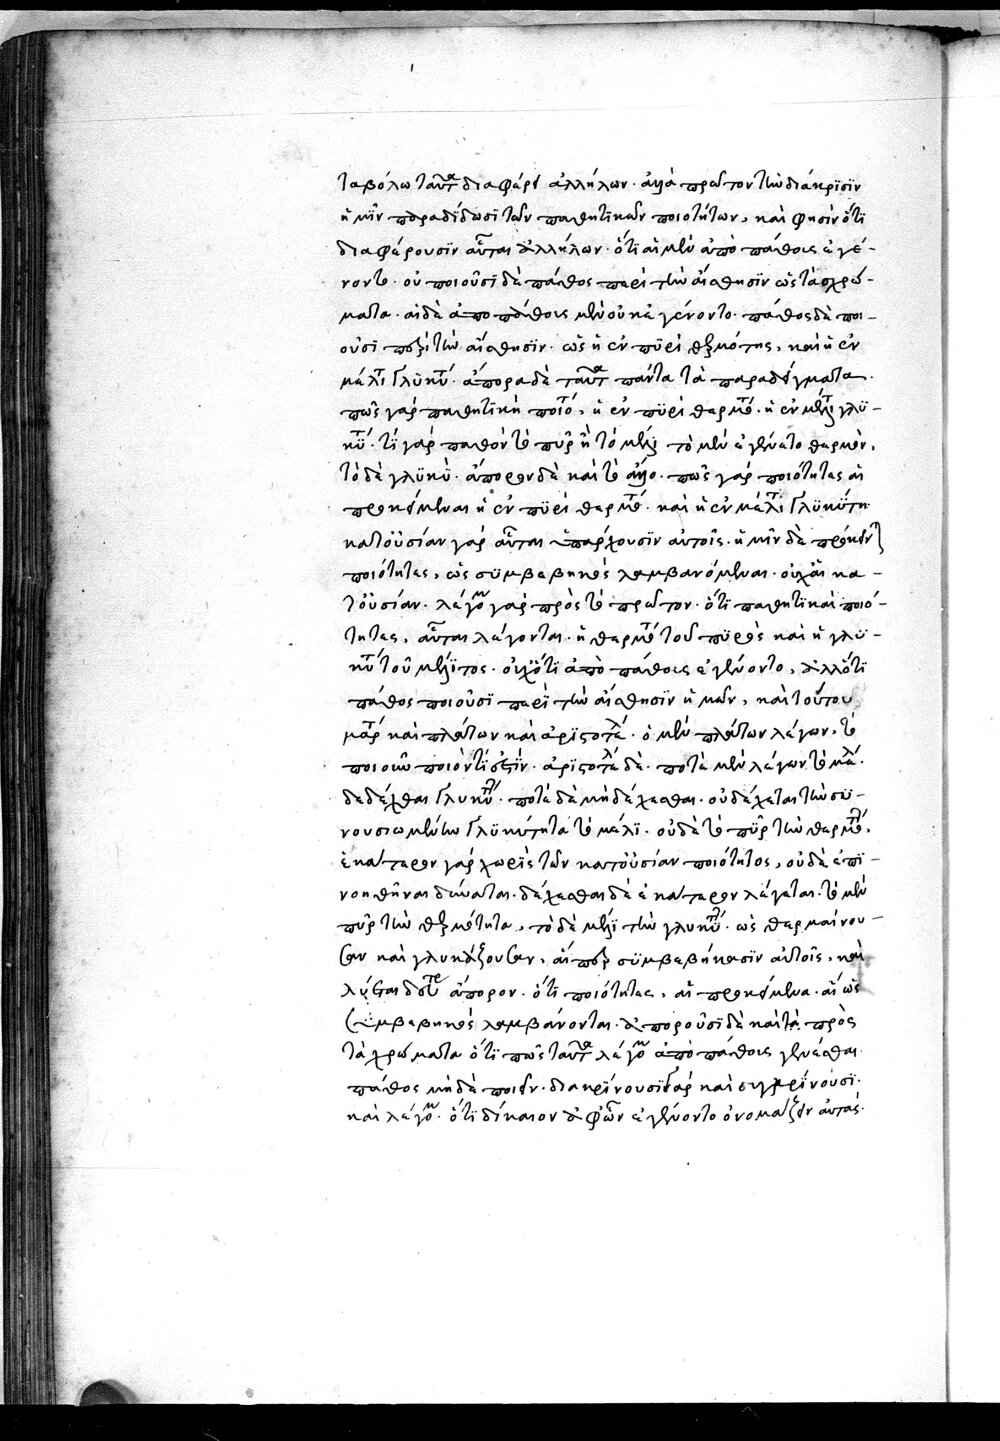 ταβόλω ταῦτα διαφέρει ἀλλήλων· ἀλλὰ πρῶτον τὴν διάκρισϊν
ἡμῖν παραδίδωσι τῶν παθητικῶν ποιοτήτων, καὶ φησὶν ὅτϊ
διαφέρουσϊν αὗται ἀλλήλων· ὅτϊ αἱ μὲν ἀπὸ πάθους ἐγέ-
νοντο· οὐ ποιοῦσϊ δὲ πάθος περὶ τὴν αἴσθησϊν ὡς τὰ χρώ-
ματα· αἱ δὲ ἀπο πάθους μὲν οὐκ ἐγένοντο· πάθος δὲ ποι-
οῦσϊ περὶ τὴν αἴσθησϊν· ὡς ἡ ἐν πϋρὶ θερμότης, καὶ ἡ ἐν
μέλιτι γλϋκύτης· ἄπορα δὲ ταῦτα πάντα τὰ παραδείγματα·
πῶς γάρ παθητϊκὴ ποιότης, ἡ ἐν πϋρὶ θερμότης· ἢ ἐν μέλιτι γλϋ-
κύτης· τί γάρ παθὸν τὸ πῦρ ἢ τὸ μέλι τὸ μὲν ἐγένετο θερμὸν,
τὸ δὲ γλϋκὺ· ἄπορον δὲ καὶ τὸ ἄλλο· πῶς γάρ ποιότητες αἱ
προκείμεναι ἡ ἐν πϋρὶ θερμότης· καὶ ἡ ἐν μέλιτι γλϋκύτης
κατοὐσίαν γάρ αὗται ὑπάρχουσϊν αὐτοῖς· ἡμῖν δὲ πρόκεινται
ποιότητες, ὡς σϋμβεβηκὸς λαμβανόμεναι· οὐχ αἱ κα-
τοὐσίαν· λέγομεν γάρ πρὸς τὸ πρῶτον· ὅτϊ παθητϊκαὶ ποιό-
τητες, αὗται λέγονται· ἡ θερμότης τοῦ πϋρὸς καὶ ἡ γλϋ-
κύτης τοῦ μέλϊτος· οὐχ ὅτϊ ἀπὸ πάθους ἐγένοντο, ἀλλότϊ
πάθος ποιοῦσϊ περὶ τὴν αἴσθησϊν ἡμῶν, καὶ τούτου
μάρτυς καὶ πλάτων καὶ ἀρϊστοτέλης· ὁ μὲν πλάτων λέγων, τὸ
ποιοῦν ποιόν τί ἐστϊν· ἀρϊστοτέλης δὲ· ποτὲ μὲν λέγων τὸ μέλι
δεδέχθαι γλυκύτητα· ποτὲ δὲ μὴ δέχεσθαι· οὐ δέχεται τὴν σϋ-
νουσιωμένην γλϋκύτητα τὸ μέλϊ· οὐδὲ τὸ πῦρ τὴν θερμότητα,
ἑκάτερον γάρ χωρὶς τῶν κατοὐσίαν ποιότητος, οὐδὲ ἐπϊ-
νοηθῆναι δύναται· δέχεσθαι δὲ ἑκάτερον λέγεται· τὸ μὲν
πῦρ τὴν θερμότητα, τὸ δὲ μέλϊ τὴν γλυκύτητα· ὡς θερμαίνου-
σαν καὶ γλυκάζουσαν, αἵπερ σϋμβεβήκασϊν αὐτοῖς, καὶ
ἄπορον· ὅτϊ ποιότητες, αἱ προκείμεναι· αἱ ὡς
συμβεβηκὸς λαμβάνονται· ἀποροῦσϊ δὲ καὶ τὰ πρὸς
τὰ χρώματα ὅτϊ πῶς ταῦτα λέγομεν ἀπὸ πάθους γενέσθαι·
πάθος μὴ δὲ ποιεῖν· διακρίνουσϊ γάρ καὶ συγκρίνουσϊ·
καὶ λέγομεν· ὅτϊ δίκαιον ἀφ' ὧν ἐγένοντο ὀνομάζειν αὐτάς·